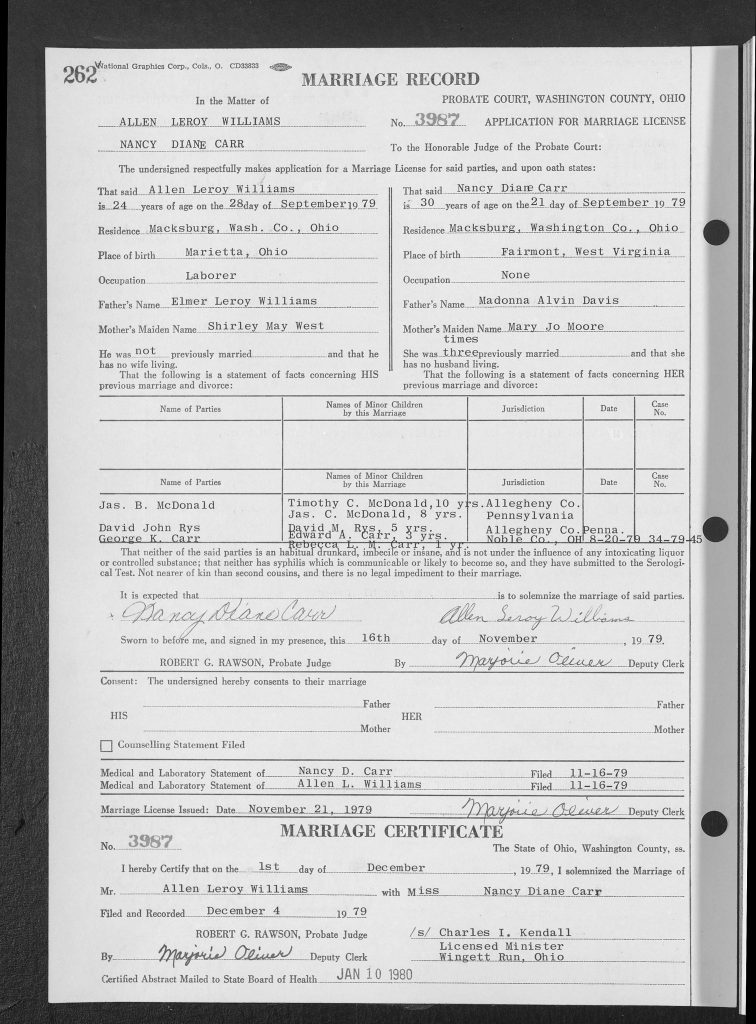 262
National Graphics Corp., Cols., O. CD33833
MARRIAGE RECORD
In the Matter of
PROBATE COURT, WASHINGTON COUNTY, OHIO
ALLEN LEROY WILLIAMS
No. 3987 APPLICATION FOR MARRIAGE LICENSE
NANCY DIANE CARR
To the Honorable Judge of the Probate Court:
The undersigned respectfully makes application for a Marriage License for said parties, and upon oath states:
That said Allen Leroy Williams
is 24 years of age on the 28 day of September 1979
Residence Macksburg, Wash. Co., Ohio
Place of birth Marietta, Ohio
Occupation Laborer
Father's Name Elmer Leroy Williams
Mother's Maiden Name Shirley May West
He was not previously married and that he
has no wife living.
That the following is a statement of facts concerning HIS
previous marriage and divorce:
That said Nancy Diane Carr
is 30 years of age on the 21 day of September 1979
Residence Macksburg, Washington Co., Ohio
Place of birth Fairmont, West Virginia
Occupation None
Father's Name Madonna Alvin Davis
Mother's Maiden Name Mary Jo Moore
times
She was three previously married and that she
has no husband living.
That the following is a statement of facts concerning HER
previous marriage and divorce:
Name of Parties Names of Minor Children by this Marriage Jurisdiction Date Case No.
Name of Parties Names of Minor Children by this Marriage Jurisdiction Date Case No.
Jas. B. McDonald Timothy C. McDonald, 10 yrs. Allegheny Co.
Jas. C. McDonald, 8 yrs. Pennsylvania
David John Rys David M. Rys, 5 yrs. Allegheny Co. Penna.
George K. Carr Edward A. Carr, 3 yrs. Noble Co., OH 8-20-79 34-79-45
Rebecca L. M. Carr, 1 yr.
That neither of the said parties is an habitual drunkard, imbecile or insane, and is not under the influence of any intoxicating liquor
or controlled substance; that neither has syphilis which is communicable or likely to become so, and they have submitted to the Serologi-
cal Test. Not nearer of kin than second cousins, and there is no legal impediment to their marriage.
It is expected that is to solemnize the marriage of said parties.
Nancy Diane Carr Allen Leroy Williams
Sworn to before me, and signed in my presence, this 16th day of November, 1979.
ROBERT G. RAWSON, Probate Judge By Marjorie Oliver Deputy Clerk
Consent: The undersigned hereby consents to their marriage
Father Father
HIS HER
Mother Mother
Counselling Statement Filed
Medical and Laboratory Statement of Nancy D. Carr Filed 11-16-79
Medical and Laboratory Statement of Allen L. Williams Filed 11-16-79
Marriage License Issued: Date November 21, 1979 Marjorie Oliver Deputy Clerk
MARRIAGE CERTIFICATE
No. 3987 The State of Ohio, Washington County, ss.
I hereby Certify that on the 1st day of December, 1979, I solemnized the Marriage of
Mr. Allen Leroy Williams with Miss Nancy Diane Carr
Filed and Recorded December 4 1979
ROBERT G. RAWSON, Probate Judge /s/ Charles I. Kendall
Licensed Minister
By Marjorie Oliver Deputy Clerk Wingett Run, Ohio
Certified Abstract Mailed to State Board of Health JAN 10 1980